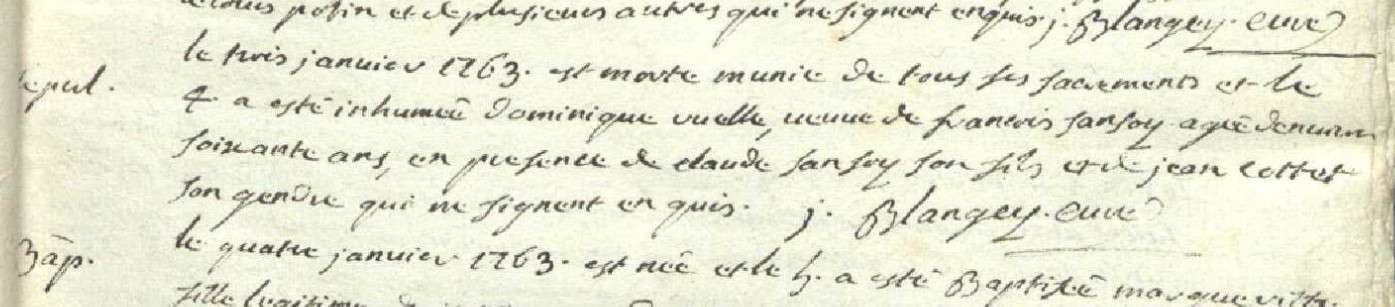 et de plusieurs autres qui ne signent enquis. j. Blangey. curé
le trois janvier 1763. est morte munie de tous ses sacrements et le
Sepul.
4. a esté inhumeé Dominique vuelle, veuve de francois sansoy ageé denviron
soixante ans, en presence de claude sansoy son fils et de jean cottet
son gendre qui ne signent enquis. j. Blangey. curé
Bap.
le quatre janvier 1763. est neé et le 5. a esté Baptiseé margueritte
fille legitime